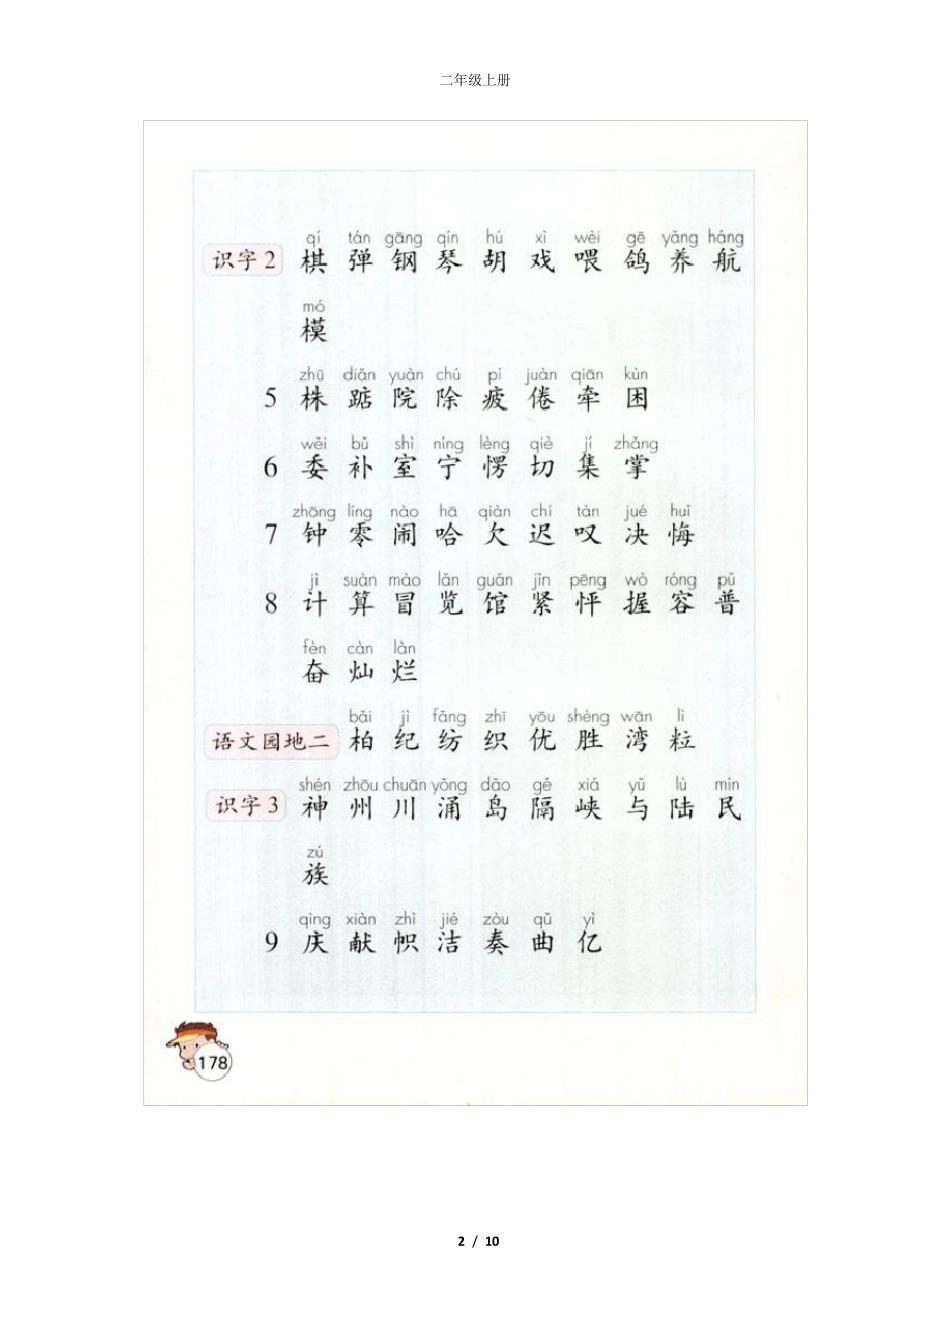 二年级上册
qí tán gāng qín hú xì wèi gē yǎng háng
识字 2 棋 弹 钢 琴 胡 戏 喂 鸽 养 航
mó
模
zhū diǎn yuàn chú pí juàn qiān kùn
5 株 踮 院 除 疲 倦 牵 困
wěi bǔ shì níng lèng qiè jí zhǎng
6 委 补 室 宁 愣 切 集 掌
zhōng líng nào hā qiàn chí tàn jué huǐ
7 钟 零 闹 哈 欠 迟 叹 决 悔
jì suàn mào lǎn guǎn jǐn pēng wò róng pǔ
8 计 算 冒 览 馆 紧 怦 握 容 普
fèn càn làn
奋 灿 烂
bǎi jì fǎng zhī yōu shèng wān lì
语文园地二 柏 纪 纺 织 优 胜 湾 粒
shén zhōu chuān yǒng dǎo gé xiá yǔ lù mín
识字 3 神 州 川 涌 岛 隔 峡 与 陆 民
zú
族
qìng xiàn zhì jié zòu qǔ yì
9 庆 献 帜 洁 奏 曲 亿
178
2 / 10